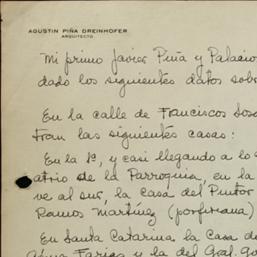 AGUSTIN PIÑA DREINHOFER
ARQUITECTO
Mi primo Javier Piña y Palacio
dado los siguientes datos sobr
En la calle de Francisco Sosa
tran las siguientes casas:
En la 1ª, y casi llegando a lo q
atrio de la Parroquia, en la
ve al sur, la casa del Pintor
Ramos Martínez (porfiriana)
En Santa Catarina la casa de
Farias y la del Gral. Go